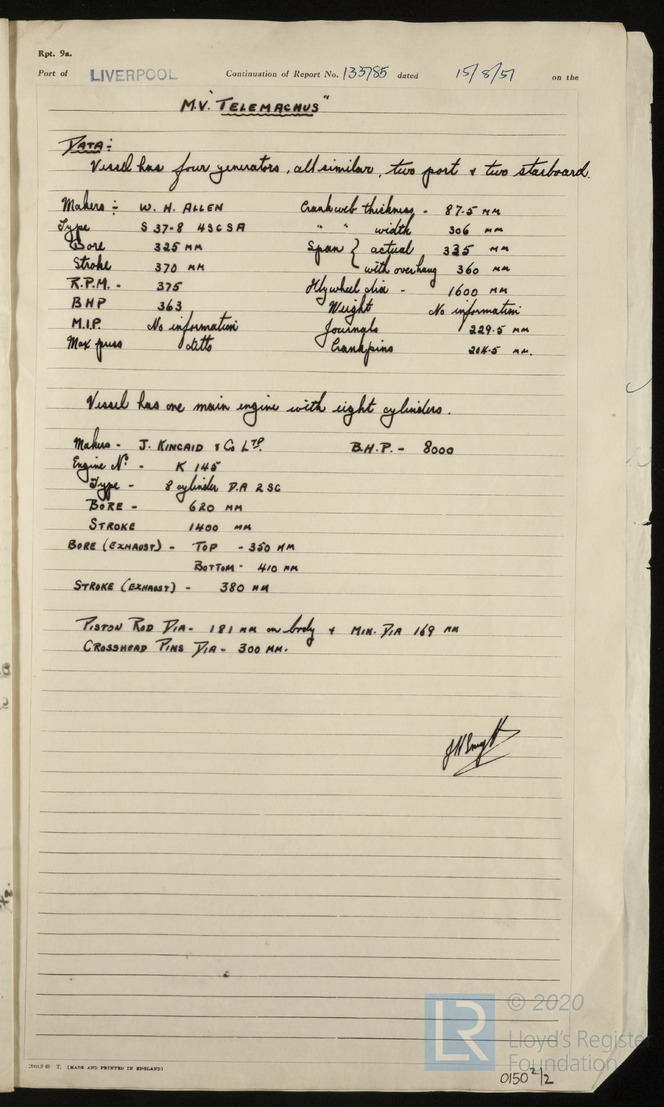 Rpt. 9a.
Port of LIVERPOOL Continuation of Report No. 133785 dated 15/8/51 on the
M.V. "TELEMACHUS"
DATA:-
Vessel has four generators, all similar, two port & two starboard.
Makers :- W. H. ALLEN Crankweb thickness - 87.5 MM
Type S 37-8 4SCSA " " width 306 MM
Bore 325 MM Span { actual 335 MM
Stroke 370 MM with overhang 360 MM
R.P.M. - 375 Flywheel dia - 1600 MM
BHP 363 Weight No information
M.I.P. No information Journals 229.5 MM
Max press ditto Crankpins 204.5 MM.
Vessel has one main engine with eight cylinders.
Makers - J. KINCAID & Co LTD. B.H.P. - 8000
Engine No. - K 145
Type - 8 cylinder D.A 2SC
BORE - 620 MM
STROKE 1400 MM
BORE (EXHAUST) - TOP - 350 MM
BOTTOM - 410 MM
STROKE (EXHAUST) - 380 MM
PISTON ROD DIA - 181 MM on body & MIN. DIA 169 MM
CROSSHEAD PINS DIA - 300 MM.
T. (MADE AND PRINTED IN ENGLAND)
LR © 2020
Lloyd's Register
Foundation
0150 2/2